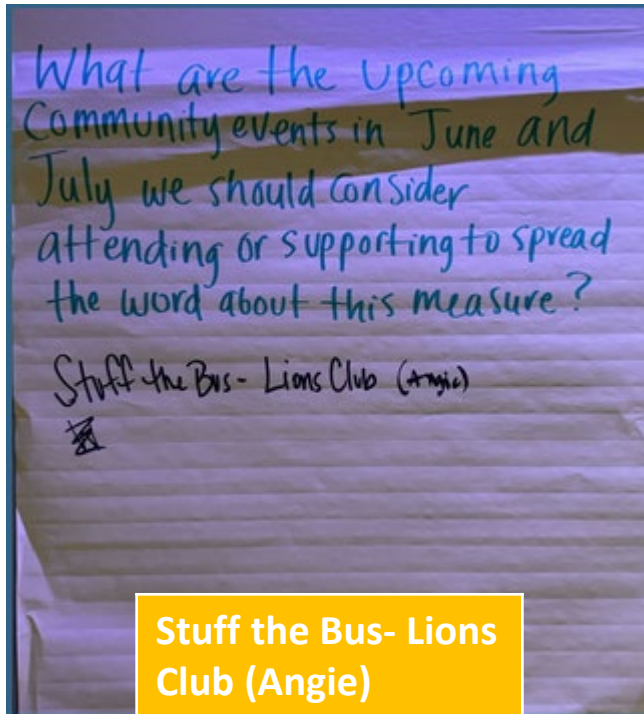 What are the upcoming
Community events in June and
July we should consider
attending or supporting to spread
the word about this measure?
Stuff the Bus- Lions Club (Angie)
Stuff the Bus- Lions
Club (Angie)